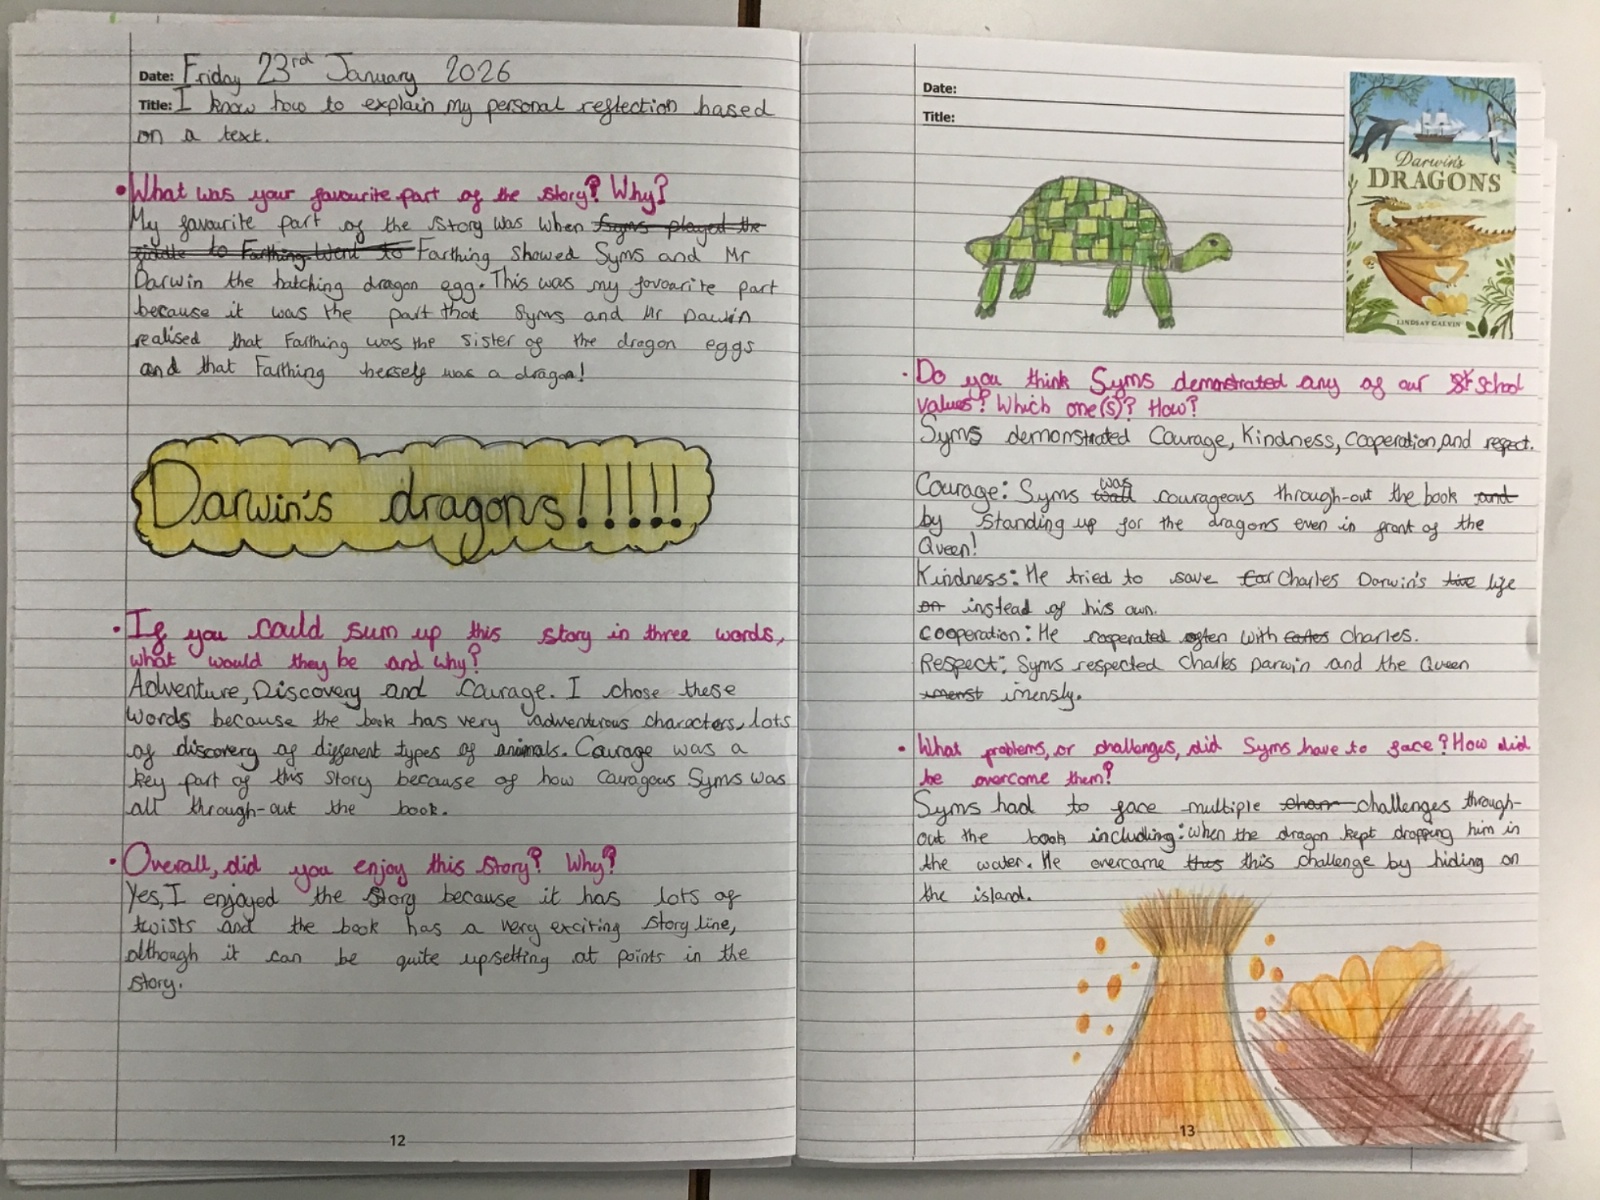 Date: Friday 23rd January 2026
Title: I know how to explain my personal reflection based
on a text.
• What was your favourite part of the story? Why?
My favourite part of the story was when Syms played the
fiddle to Farthing went to Farthing showed Syms and Mr
Darwin the hatching dragon egg. This was my favourite part
because it was the part that Syms and Mr Darwin
realised that Farthing was the sister of the dragon eggs
and that Farthing herself was a dragon!
Darwin's dragons!!!!!
• If you could sum up this story in three words,
what would they be and why?
Adventure, Discovery and Courage. I chose these
words because the book has very adventurous characters, lots
of discovery of different types of animals. Courage was a
key part of this story because of how couragous Syms was
all through-out the book.
• Overall, did you enjoy this story? Why?
Yes, I enjoyed the story because it has lots of
twists and the book has a very exciting story line,
although it can be quite upsetting at points in the
story.
12
Date:
Title:
Darwin's
DRAGONS
LINDSAY GALVIN
• Do you think Syms demonstrated any of our school
values? Which one(s)? How?
Syms demonstrated Courage, Kindness, cooperation, and respect.
Courage: Syms was courageous through-out the book and
by standing up for the dragons even in front of the
Queen!
Kindness: He tried to save Charles Darwin's life
instead of his own.
Cooperation: He cooperated often with Charles.
Respect: Syms respected Charles Darwin and the Queen
imensly.
• What problems, or challenges, did Syms have to face? How did
he overcome them?
Syms had to face multiple challenges through-
out the book including: when the dragon kept dropping him in
the water. He overcame this challenge by hiding on
the island.
13